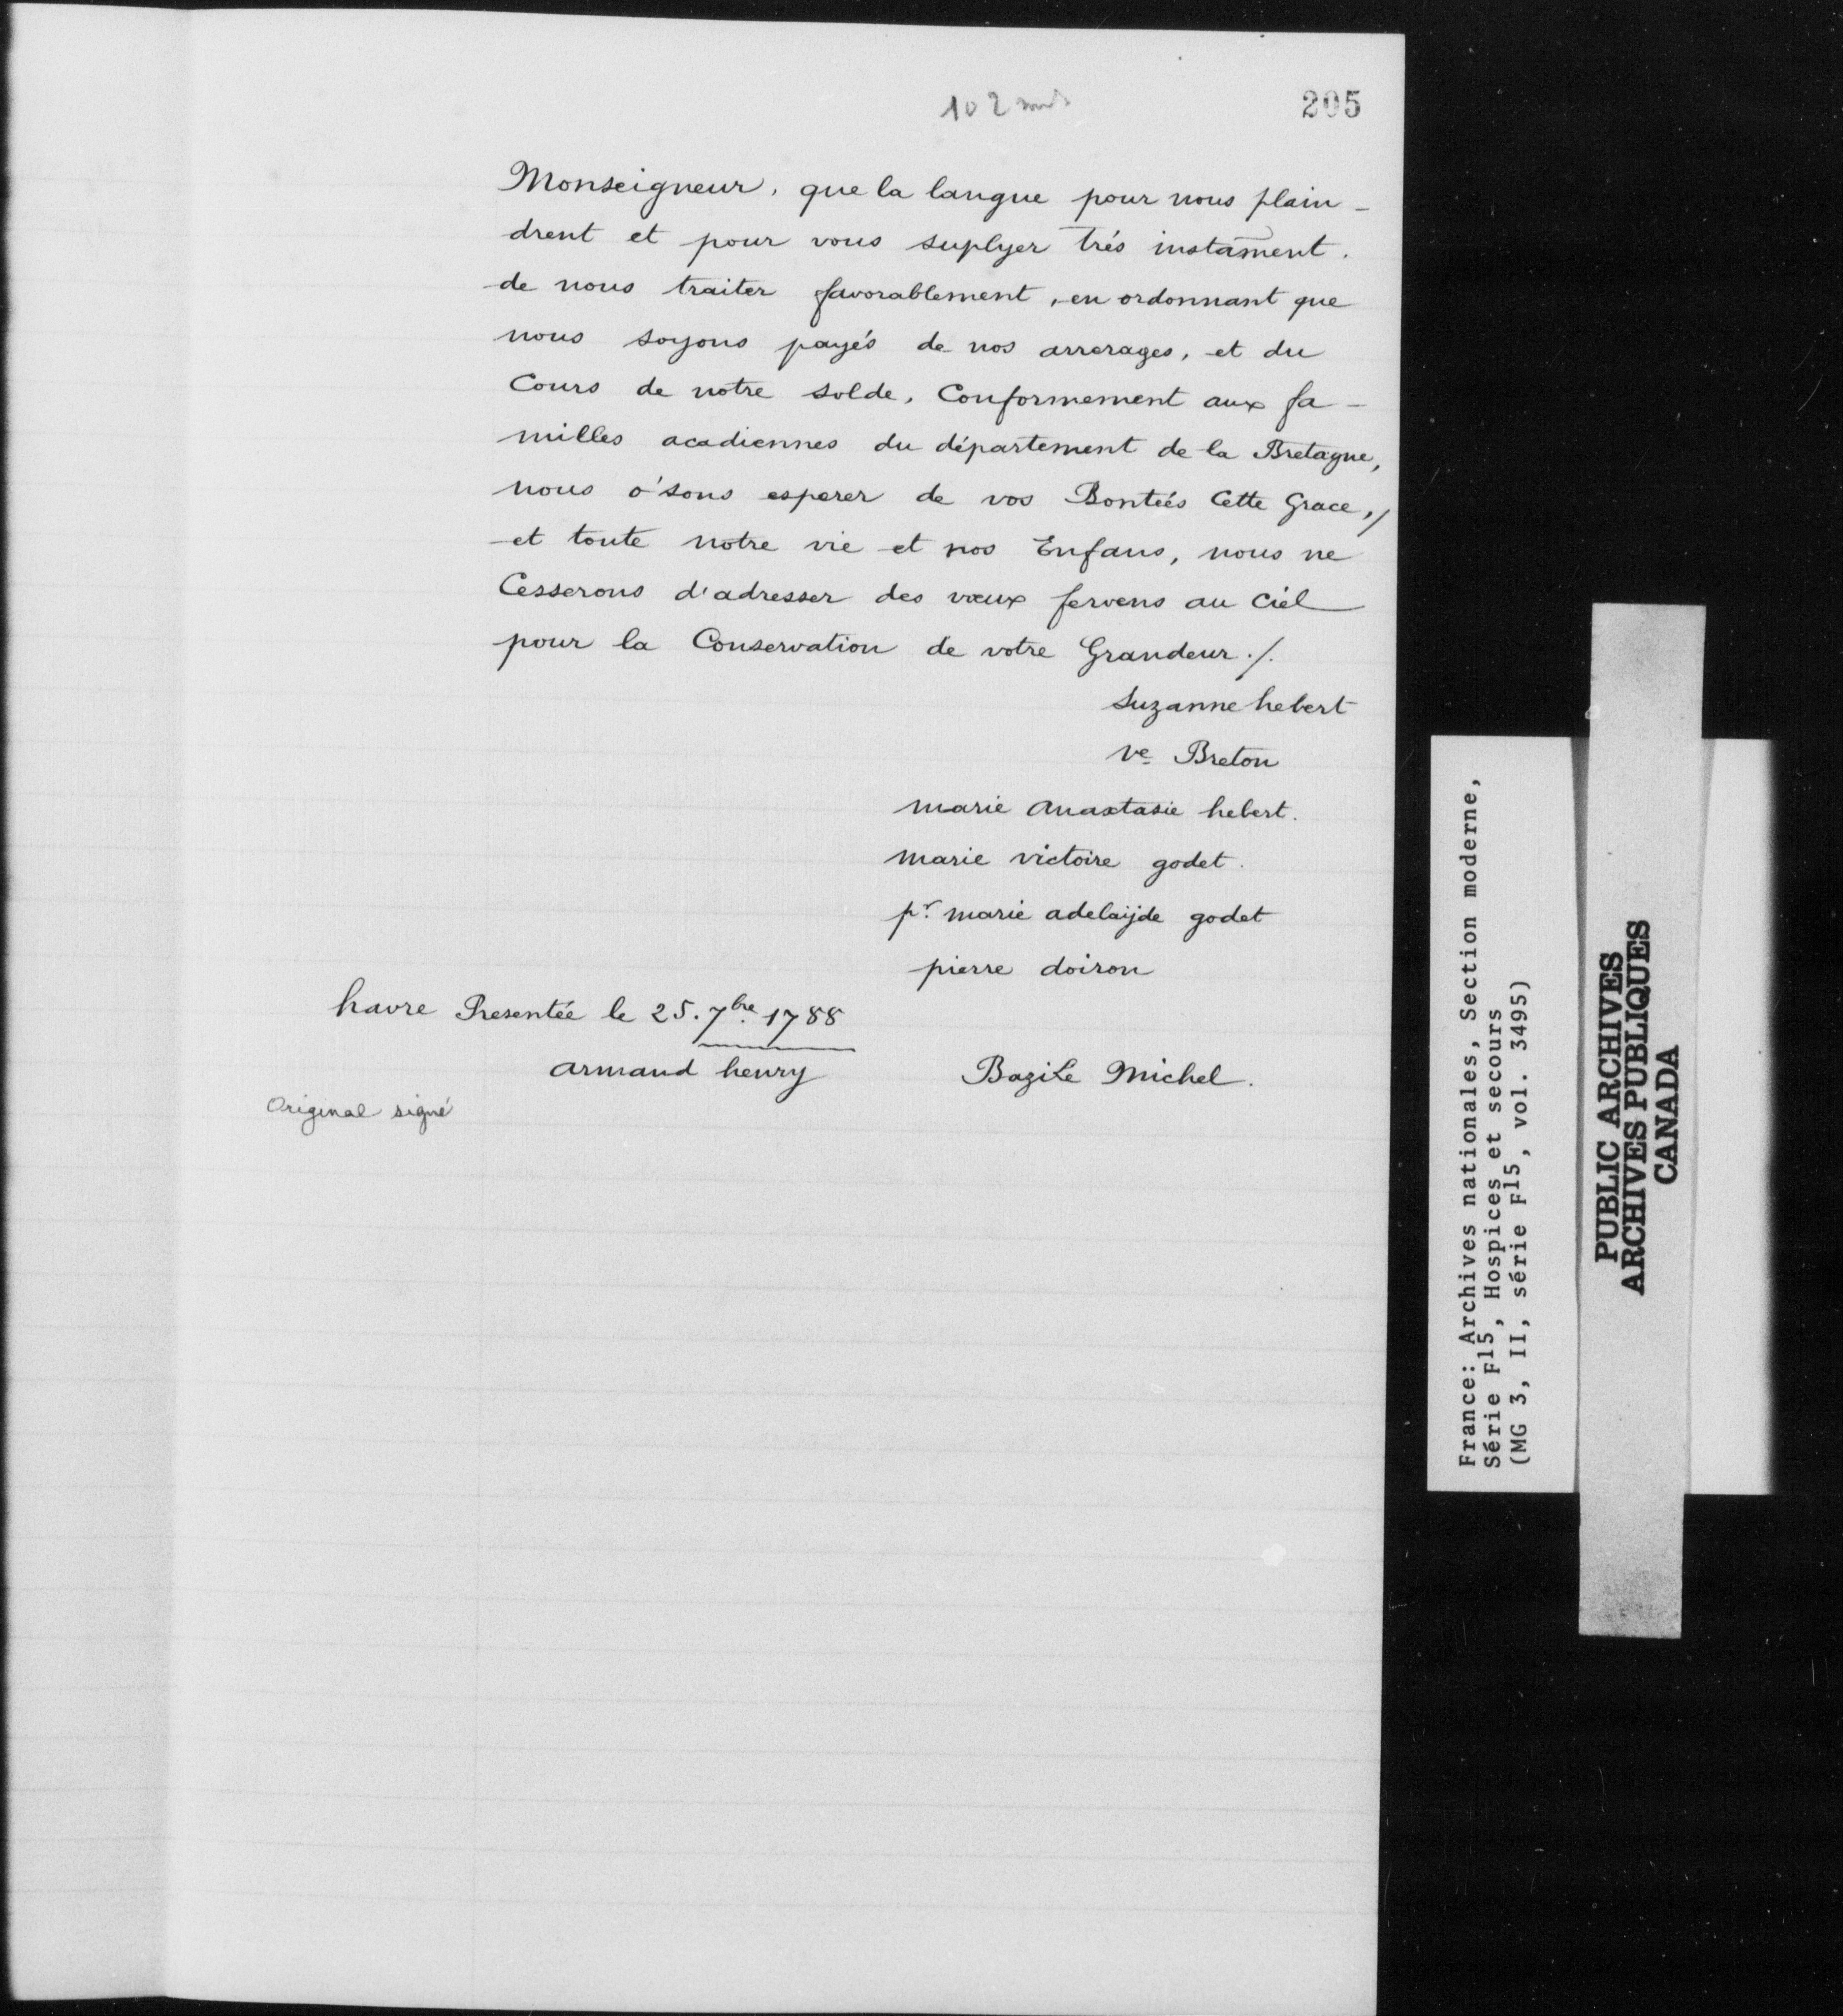 205
Monseigneur, que la langue pour nous plain-
drent et pour vous suplyer trés instam̄ent.
de nous traiter favorablement, en ordonnant que
nous soyons payés de nos arrerages, et du
Cours de notre solde, Conformement aux fa-
milles acadiennes du département de la Bretagne,
nous o'sons esperer de vos Bontés Cette Grace,/
et toute notre vie et nos Enfans, nous ne
Cesserons d'adresser des vœux fervens au Ciel
pour la Conservation de votre Grandeur./.
suzanne hebert
ve Breton
marie anaxtasie hebert.
marie victoire godet.
pr. marie adelaijde godet
pierre doiron
havre Presentée le 25. 7bre. 1788
armand henry Bazile Michel.
Original signé
France: Archives nationales, Section moderne,
Série F15, Hospices et secours
(MG 3, II, série F15, vol. 3495)
PUBLIC ARCHIVES
ARCHIVES PUBLIQUES
CANADA